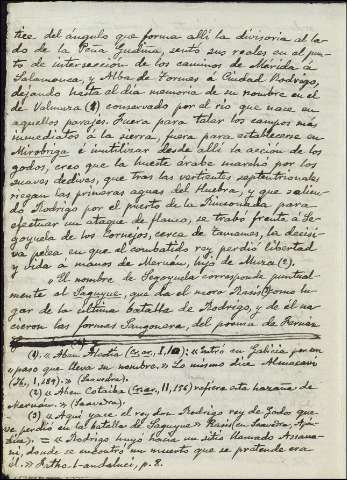 tice del ángulo que forma allí la divisoria al la-
do de la Peña Gudina, sentó sus reales en el pun-
to de intersección de los caminos de Mérida á
Salamanca, y Alba de Tormes á Ciudad Rodrigo,
dejando hasta el día memoria de su nombre en el
de Valmuza (1) conservado por el río que nace en
aquellos parajes. Fuera para talar los campos más
inmediatos á la sierra, fuera para establecerse en
Mirobriga é inutilizar desde allí la acción de los
godos, creo que la hueste árabe marchó por los
suaves declives, que tras las vertientes septentrionales
riegan las primeras aguas del Huebra, y que salien-
do Rodrigo por el puerto de la Rinconada para
efectuar un ataque de flanco, se trabó frente á Se-
goyuela de los Cornejos, cerca de Tamames, la decisi-
va pelea en que el combatido rey perdió libertad
y vida á manos de Meruán, hijo de Muza (2).
"El nombre de Segoyuela corresponde puntual-
mente al Saguyue, que da el moro Rasis (3) como lu-
gar de la última batalla de Rodrigo, y de él na-
cieron las formas Sangonera, del poema de Fernán
(1). « Aben Alcotia : « Entró en Galicia por un
"paso que lleva su nombre." Lo mismo dice Almacari
(Ib, I, 189). » (Saavedra).
(2) « Aben Cotaiba II, 156) refiere esta hazaña de
Meruán." (Saavedra).
(3) « Aquí yace el rey don Rodrigo rey de Godos que
se perdió en la batalla del Saguyue." Rasis (en Saavedra,
= « Rodrigo huyó hacia un sitio llamado
donde se encontró un muerto que se pretende era
él. » p. 8.